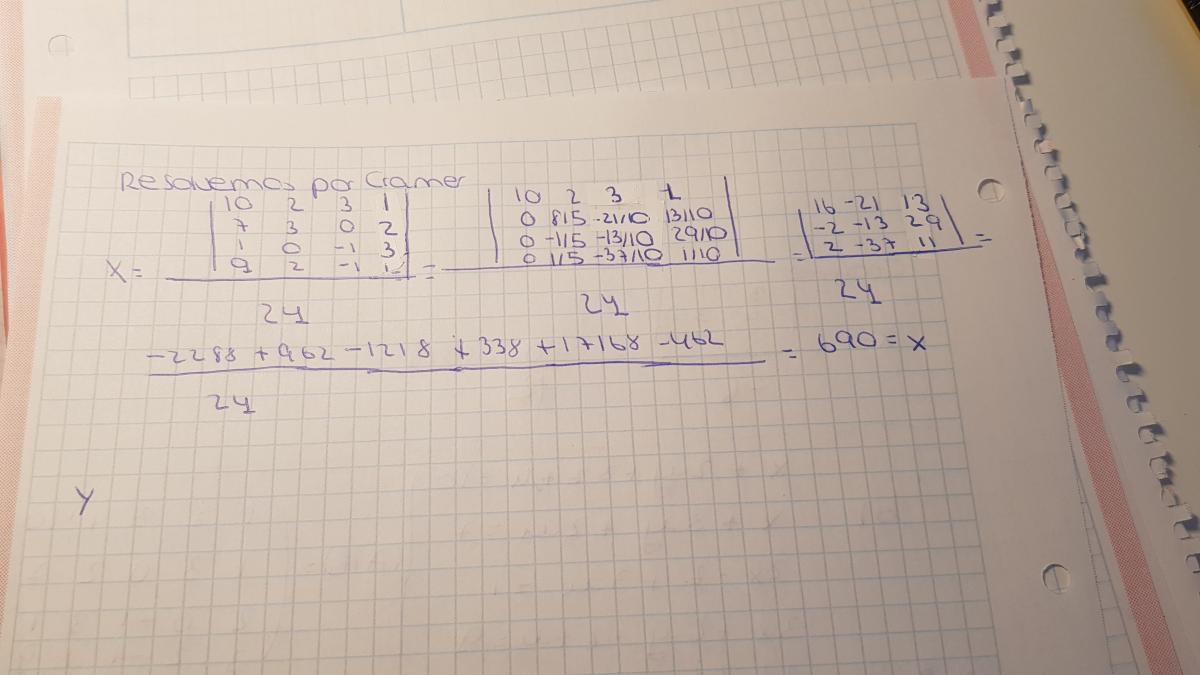 Resolvemos por Cramer
X = | 10 2 3 1 | = | 10 2 3 1 | = | 16 -21 13 | =
| 7 3 0 2 | | 0 8/5 -21/10 13/10 | | -2 -13 29 |
| 1 0 -1 3 | | 0 -1/5 -13/10 29/10 | | 2 -37 11 |
| 9 2 -1 1 | | 0 1/5 -37/10 1/10 |
24 24 24
-2288 + 962 - 1218 + 338 + 17168 - 462 = 690 = x
24
y